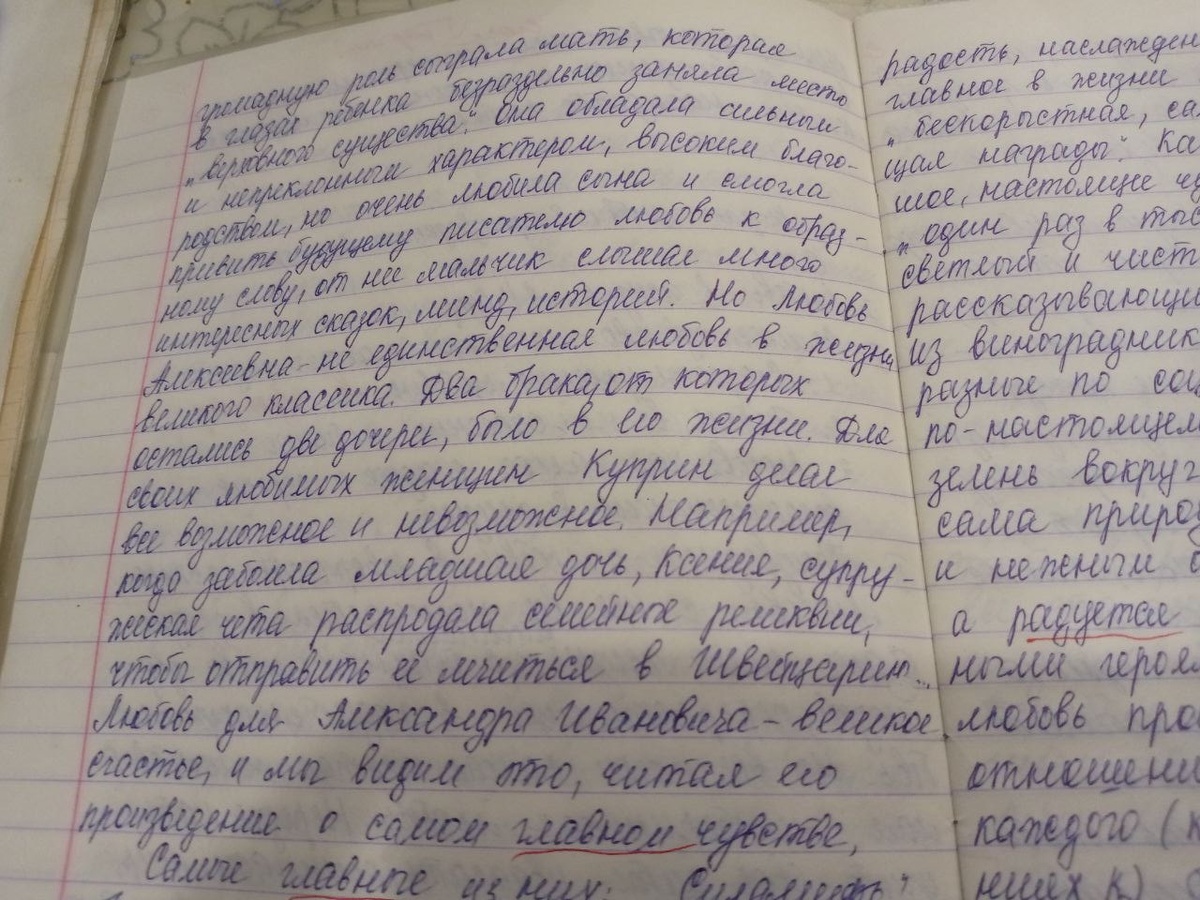 громадную роль сыграла мать, которая
в глазах ребенка безраздельно заняла место
„верховного существа". Она обладала сильным
и непреклонным характером, высоким благо-
родством, но очень любила сына и смогла
привить будущему писателю любовь к образ-
ному слову, от нее мальчик слышал много
интересных сказок, историй. Но Любовь
Алексеевна - не единственная любовь в жизни
великого классика. Два брака, от которых
остались две дочери, было в его жизни. Для
своих любимых женщин Куприн делал
все возможное и невозможное. Например,
когда заболела младшая дочь, Ксения, супру-
жеская чета распродала семейные реликвии,
чтобы отправить ее лечиться в Швейцарию...
Любовь для Александра Ивановича - великое
счастье, и мы видим это, читая его
произведение о самом главном чувстве,
Самые главные из них: „Суламифь"
радость, наслажден
главное в жизни
„бескорыстная, са
щая награды". Ка
шое, настоящее чу
„один раз в тыс
светлый и чист
рассказывающи
из виноградник
разные по соц
по-настоящем
зелень вокруг
сама природ
и нежным
а радуется
ными героя
любовь про
отношени
каждого (к
ниях к)